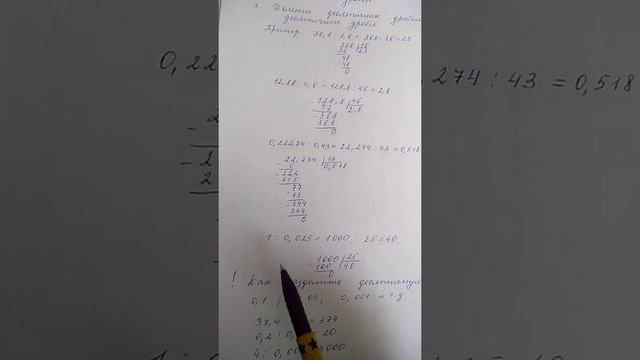 1. Деление десятичных дробей
десятичного дробл
Пример: 36,8 : 1,6 = 368 : 16 = 23
- 368 | 16
32 | 23
- 48
48
0
12,88 : 4,6 = 128,8 : 46 = 2,8
- 128,8 | 46
92 | 2,8
- 368
368
0
0,22274 : 0,43 = 22,274 : 43 = 0,518
- 22,274 | 43
0 | 0,518
- 222
215
- 77
43
- 344
344
0
1 : 0,025 = 1000 : 25 = 40.
- 1000 | 25
100 | 40
0
! Как разделить десятичную
0,1 ; 01, 0,001 и т.д.
37,4 : = 374
0,2 : 0, 20
4 : 0,00 4000
0,22
274 : 43 = 0,518